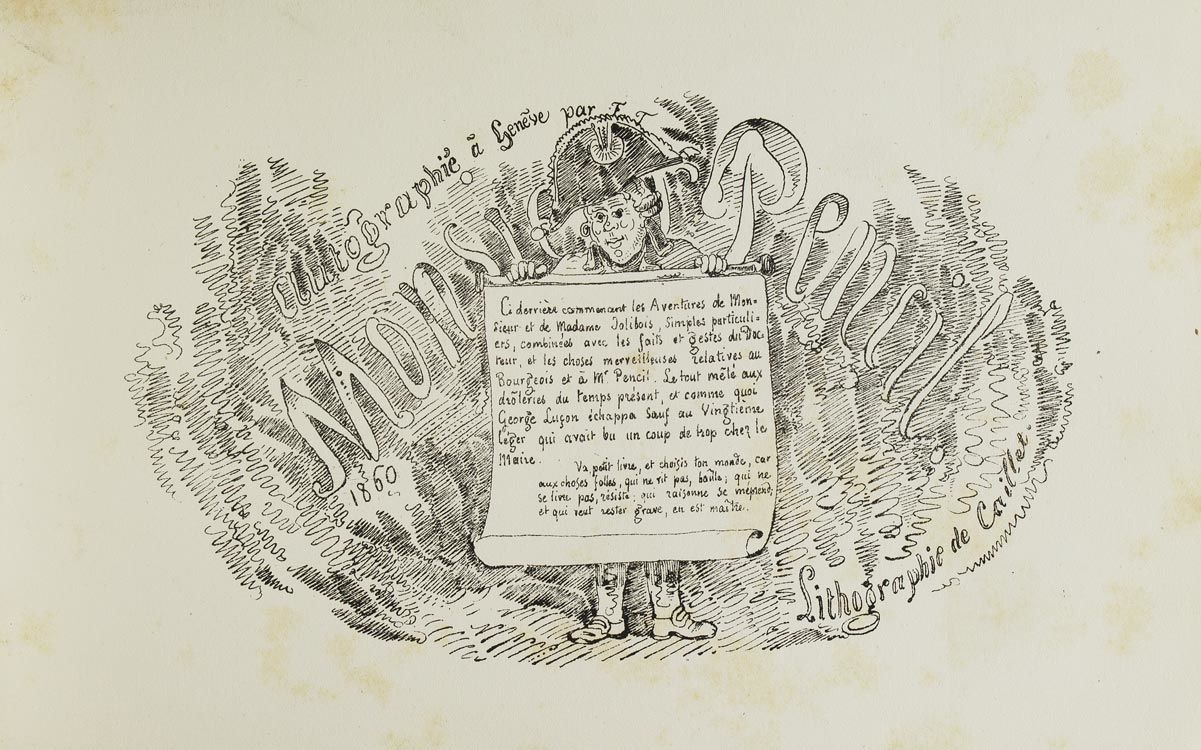 Autographié à Genève par F T
Monsr Pencil
1860
Ci derrière commencent les Aventures de Mon=
sieur et de Madame Jolibois, simples particuli=
ers, combinées avec les faits et gestes du Doc=
teur, et les choses merveilleuses relatives au
Bourgeois et à Mr Pencil. Le tout mêlé aux
drôleries du temps présent, et comme quoi
George Luçon échappa sauf au Vingtième
léger qui avait bu un coup de trop chez le
Maire.
Va petit livre, et choisis ton monde, car
aux choses folles, qui ne rit pas, baille; qui ne
se livre pas, résiste; qui raisonne se méprend;
et qui veut rester grave, en est maître.
Lithographie de Caillet.